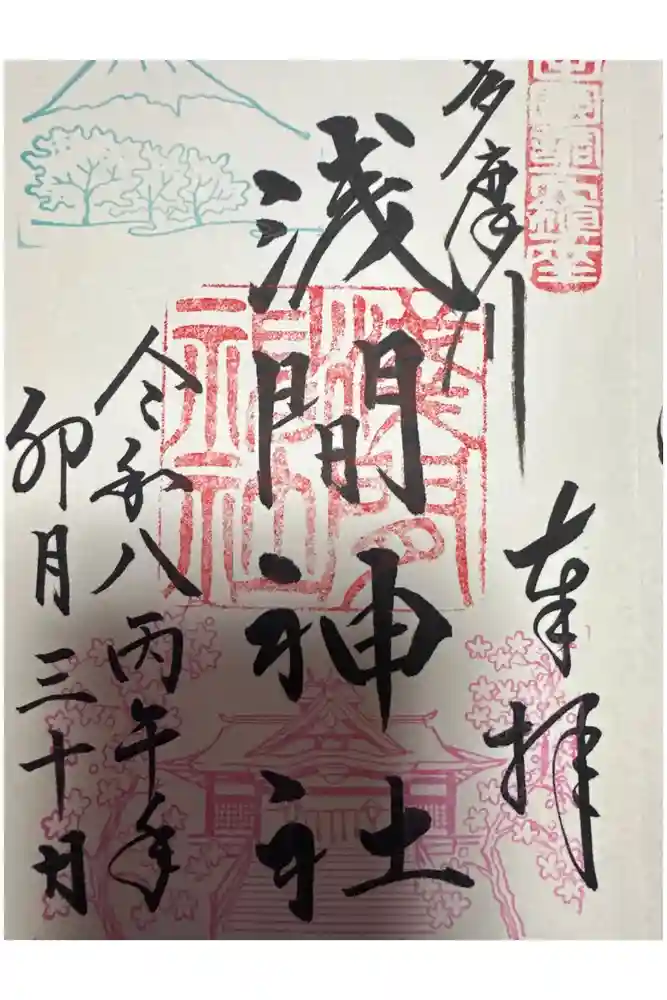 多摩川
奉拝
浅間神社
令和八丙午年
卯月三十日